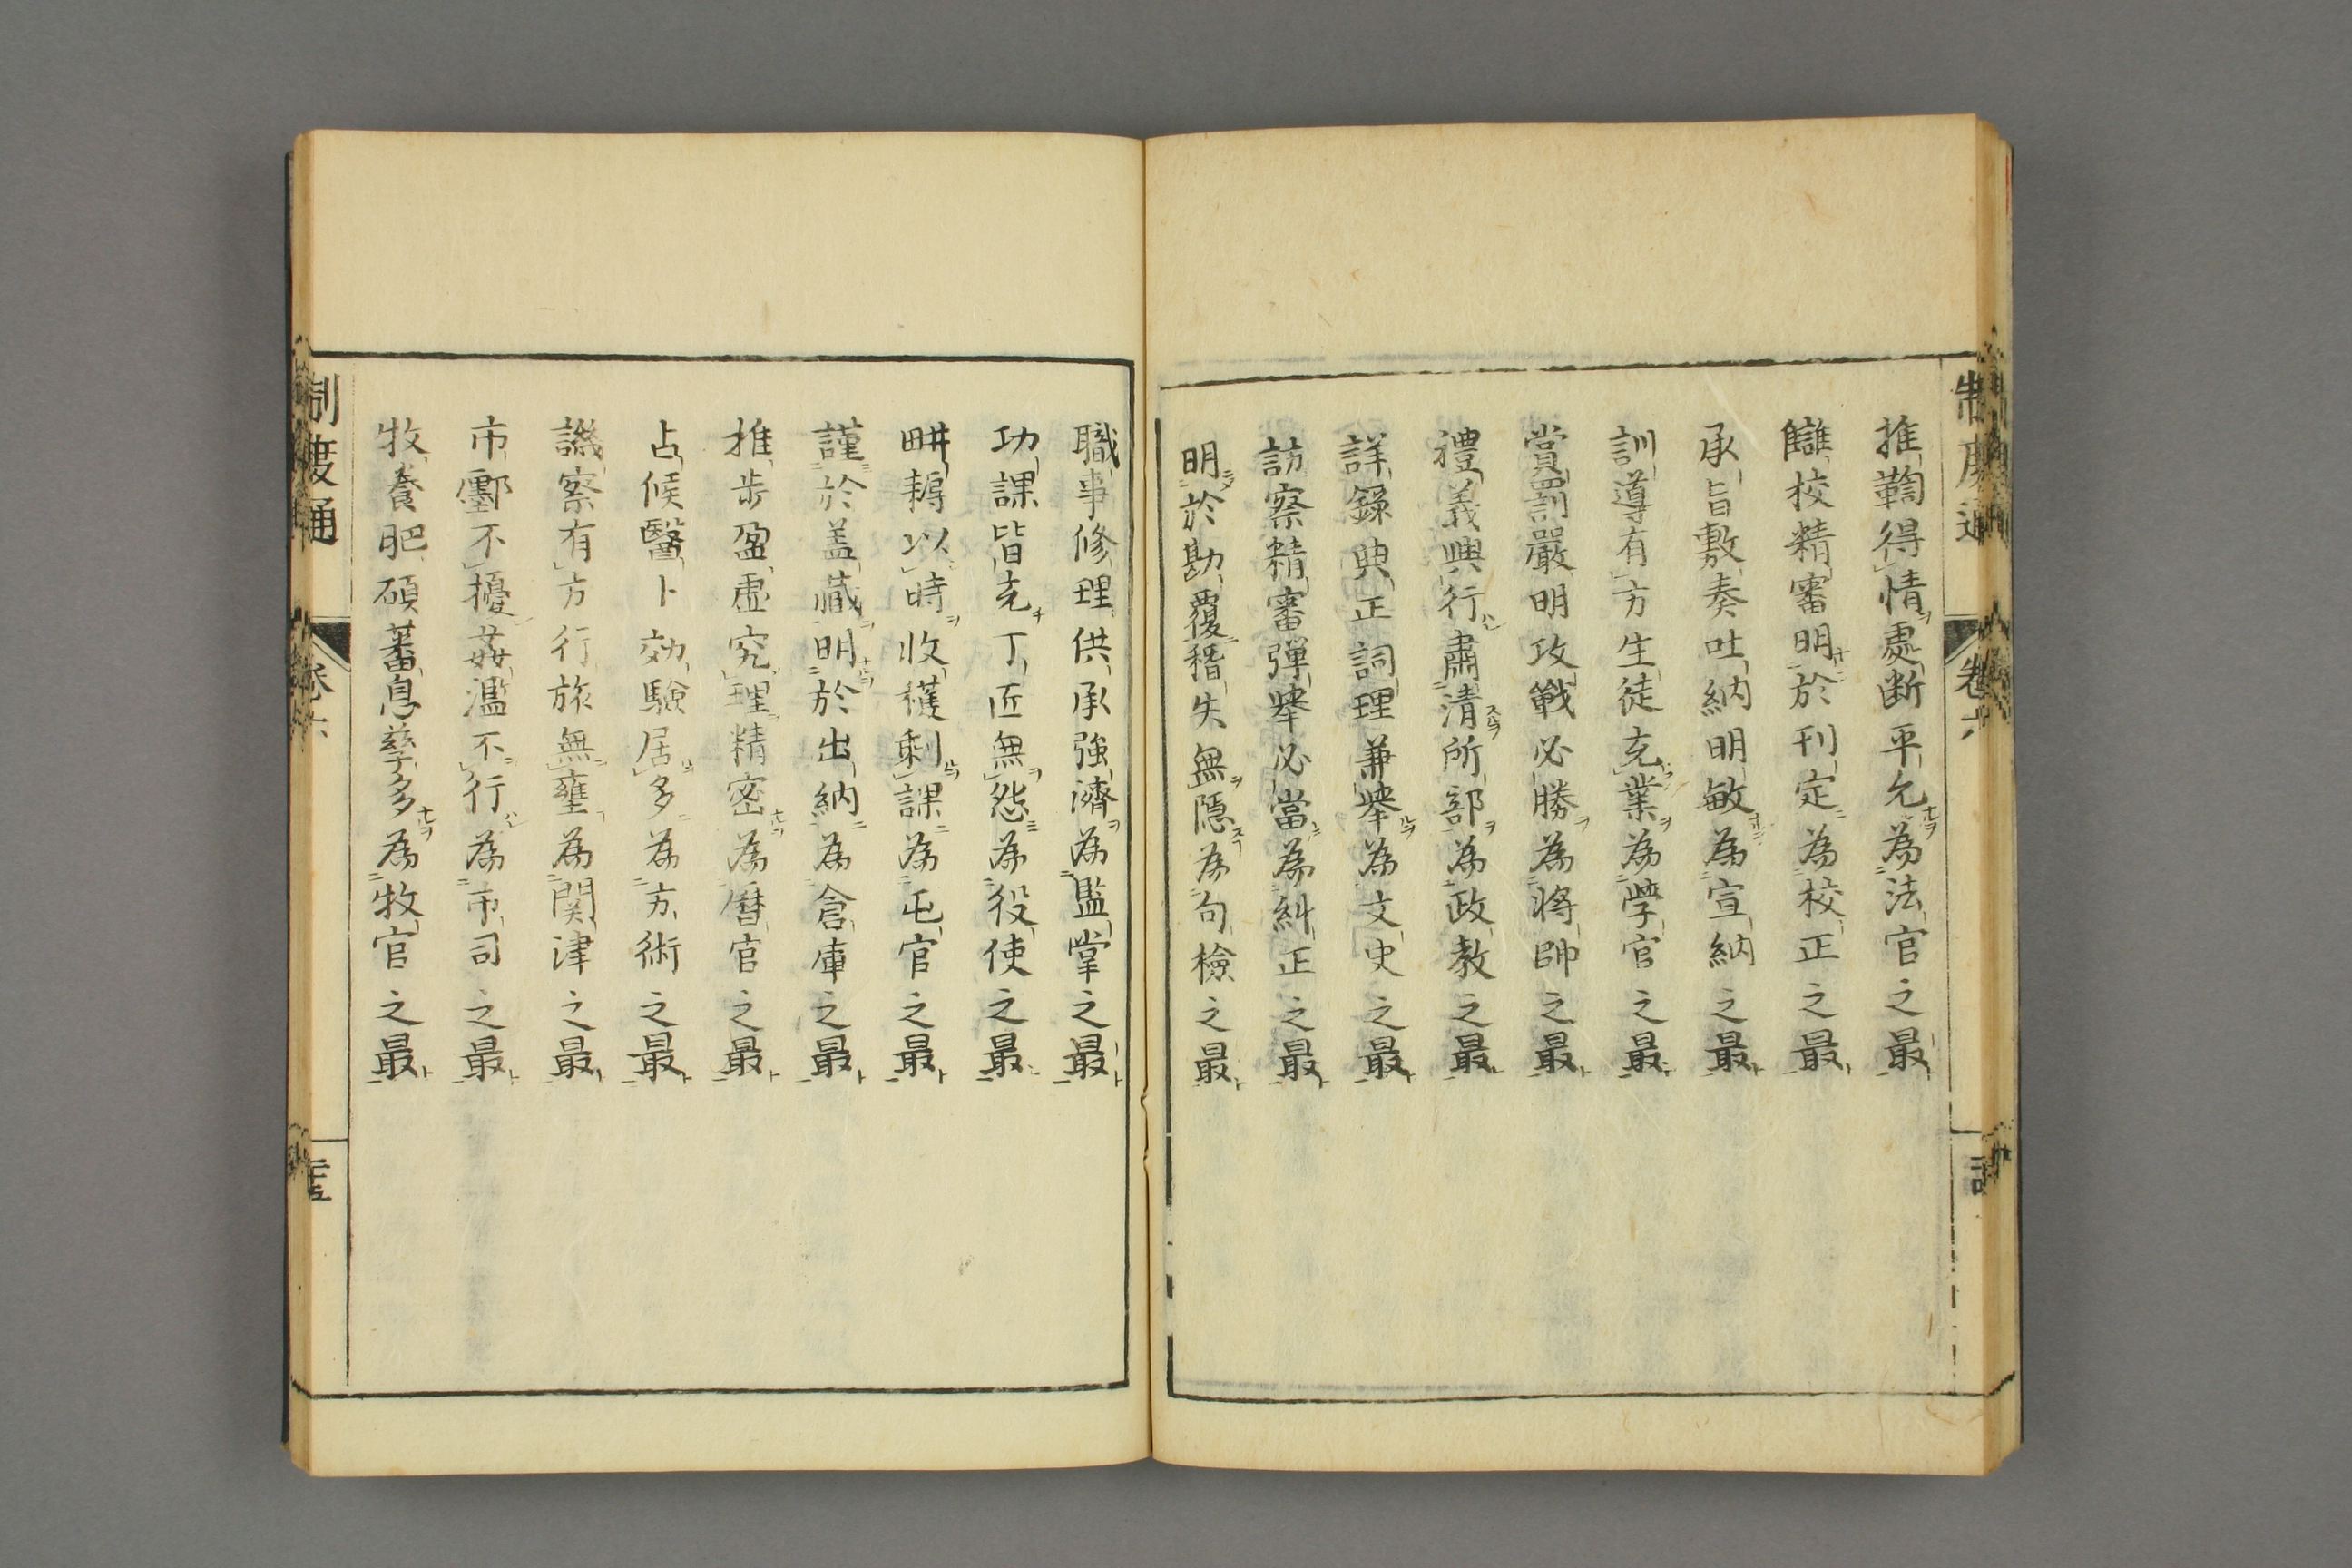 制度通
卷六
推鞫得情處断平允為法官之最
讎校精審明於刊定為校正之最
承旨敷奏吐納明敏為宣納之最
訓導有方生徒充業為學官之最
賞罰嚴明攻戰必勝為將帥之最
禮義興行肅清所部為政教之最
詳錄典正詞理兼舉為文史之最
訪察精審彈舉必當為糾正之最
明於勘覆稽失無隱為句檢之最
職事修理供承強濟為監掌之最
功課皆充丁匠無怨為役使之最
畊耨以時收穫剩課為屯官之最
謹於盖藏明於出納為倉庫之最
推步盈虛究理精密為曆官之最
占候醫卜効驗居多為方術之最
譏察有方行旅無壅為関津之最
市鄽不擾姦濫不行為市司之最
牧養肥碩蕃息孳多為牧官之最
制度通
卷六